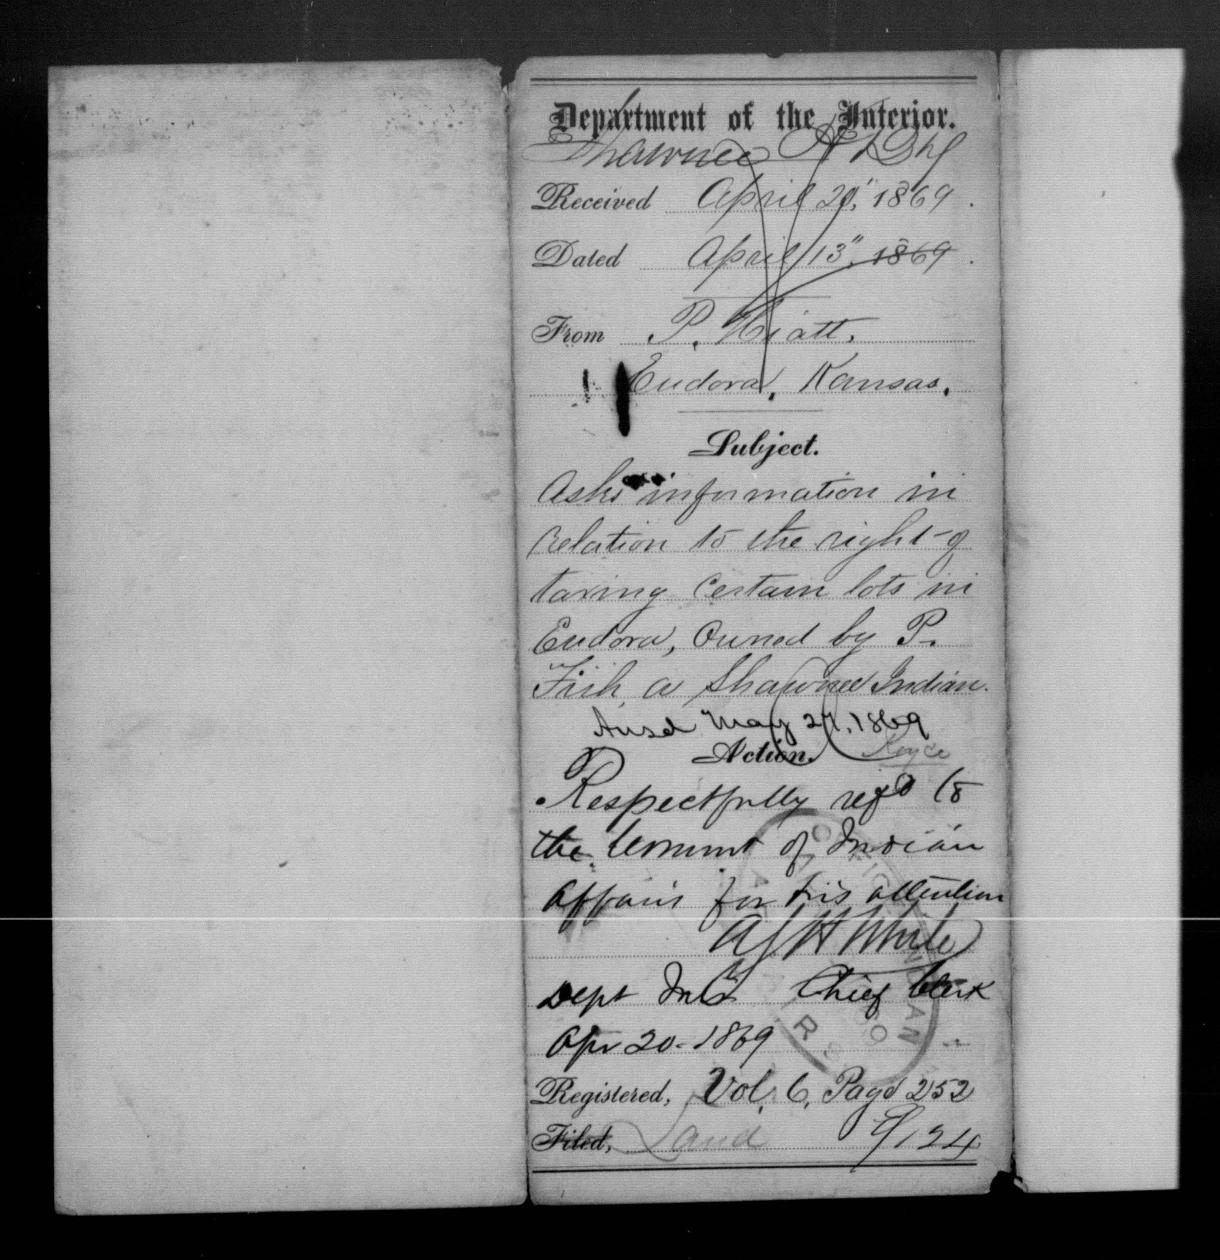 Department of the Interior.
Shawnee
Received April 20", 1869.
Dated April 13", 1869.
From P. Hiatt,
Eudora, Kansas.
Subject.
Asks information in
relation to the right of
taxing certain lots in
Eudora, owned by P.
Fish a Shawnee Indian.
Ansd May 27, 1869
Action.
Respectfully refd to
the Commr of Indian
Affairs for his attention
White
Dept Int Chief Clerk
Apr 20-1869
OFFICE INDIAN AFFAIRS
Registered, Vol. 6, Page 252
Filed, Land